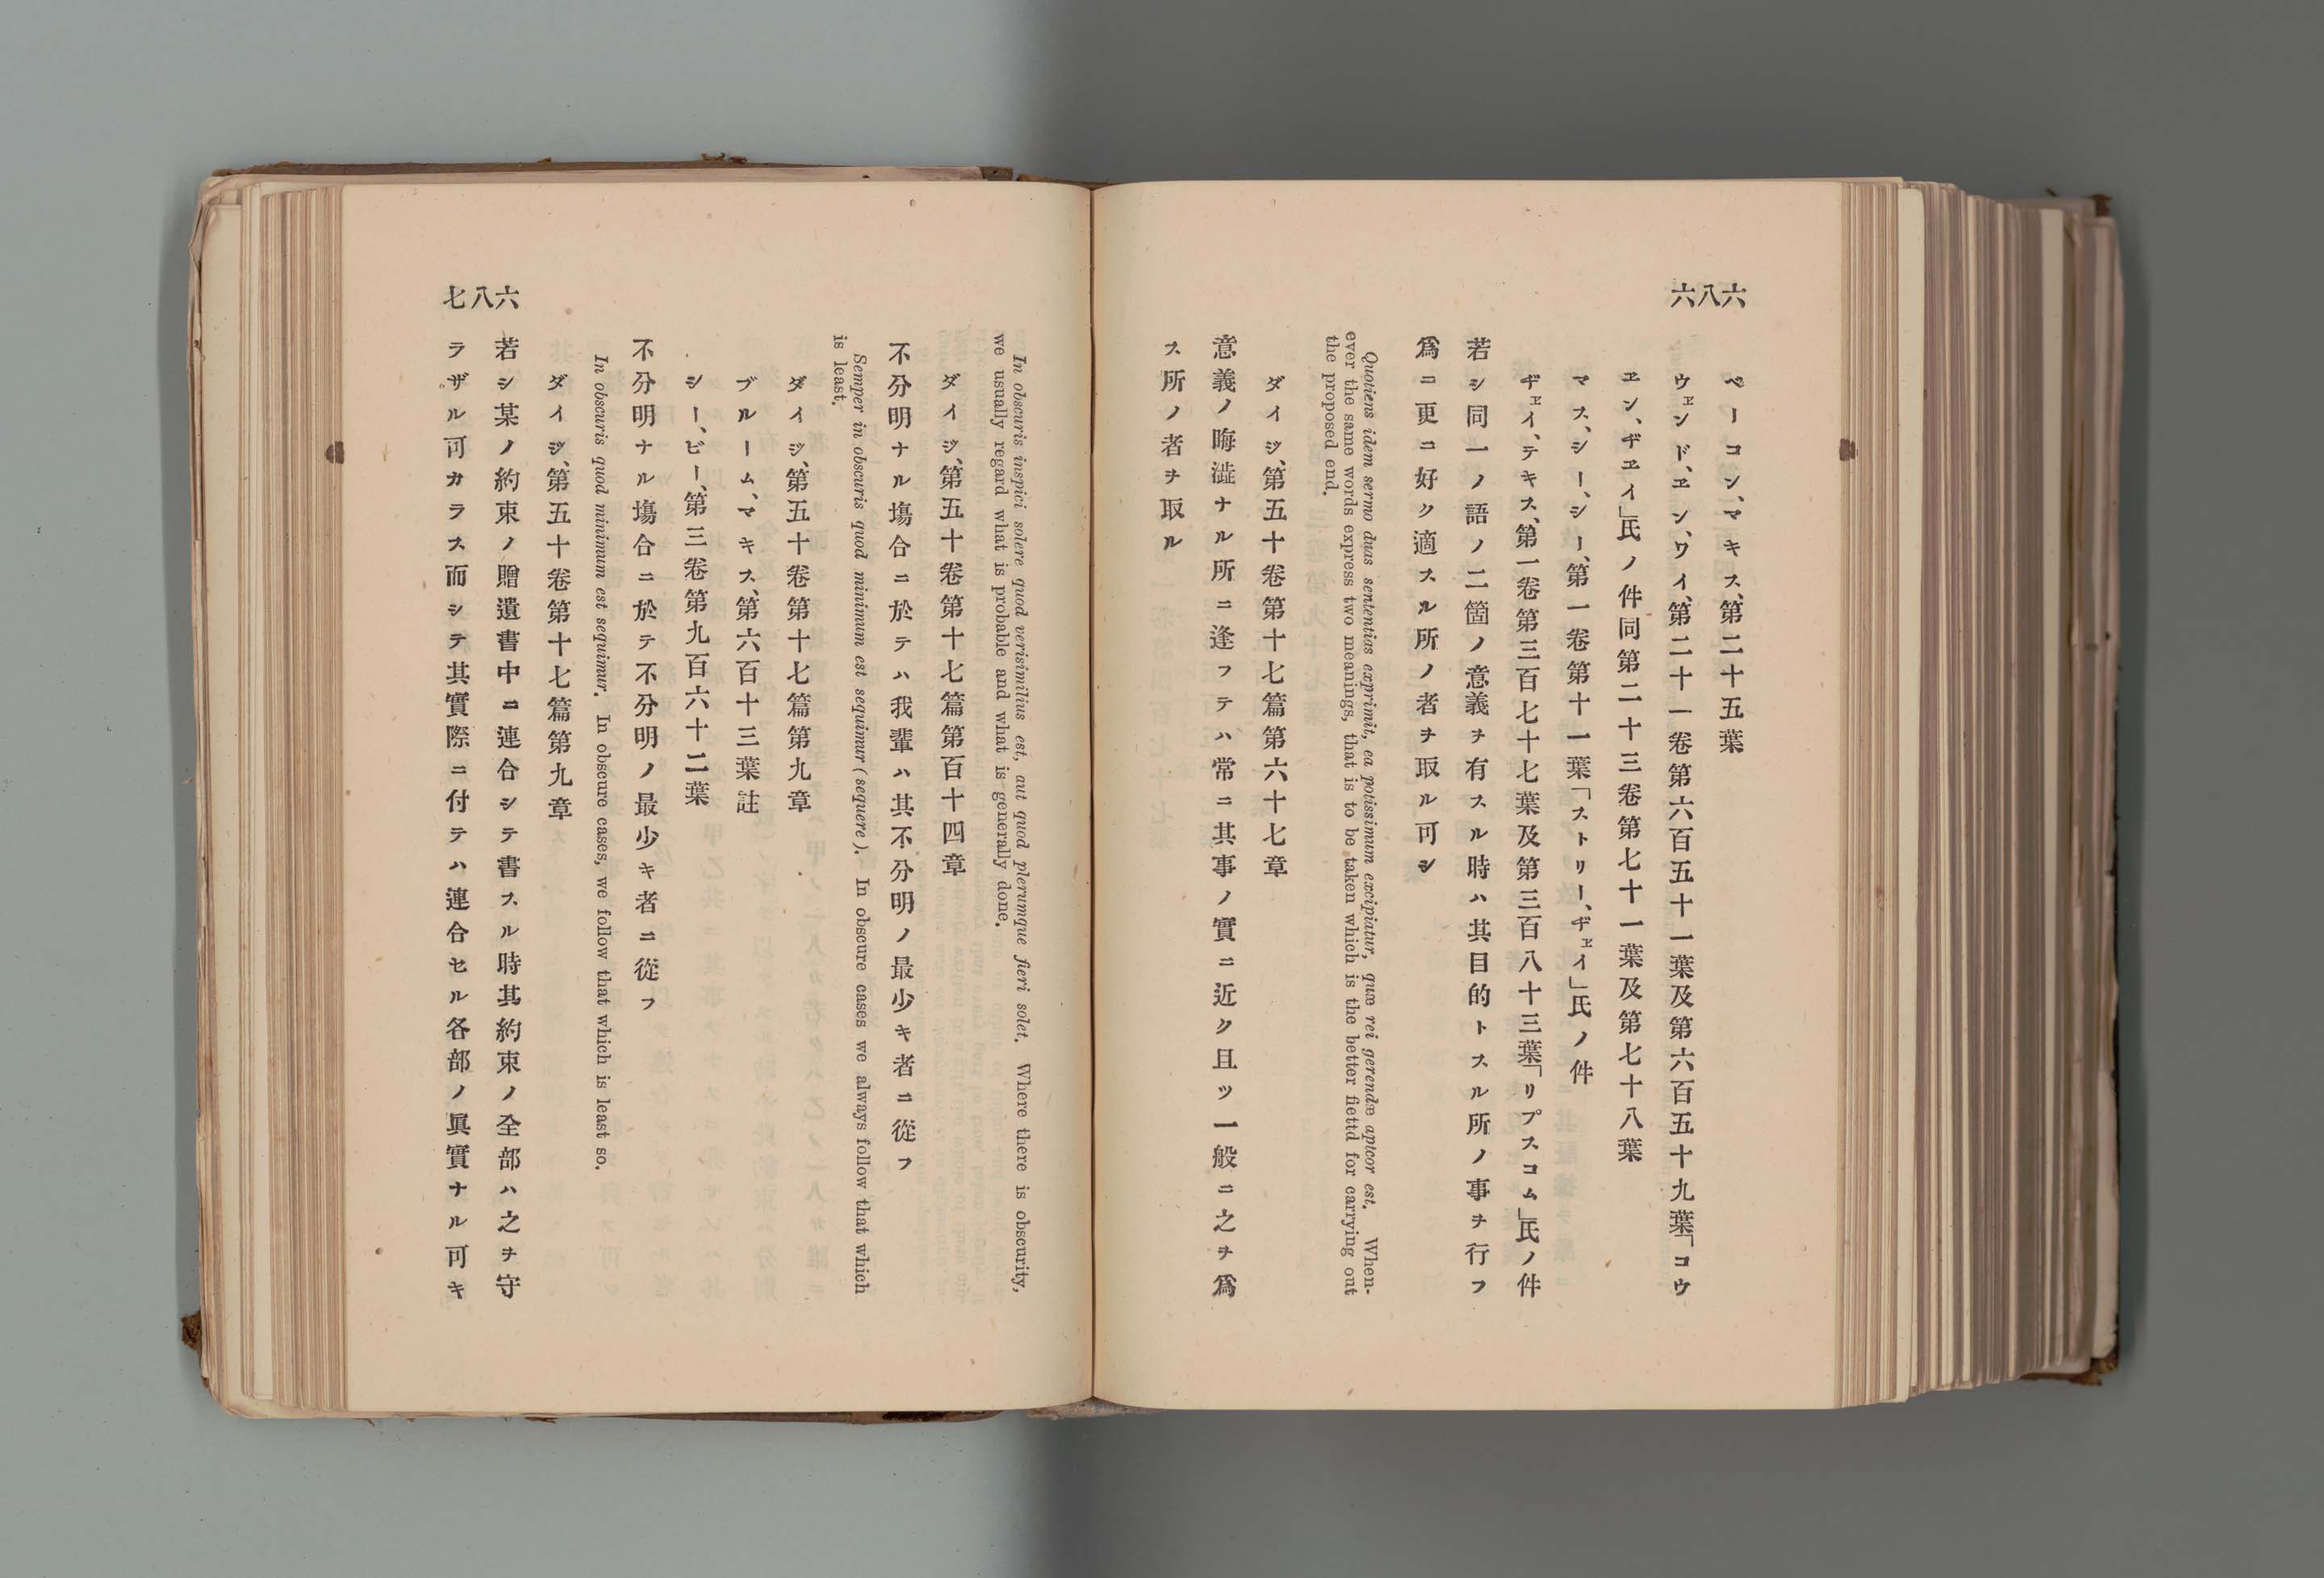 六八六
ベーコン、マキス、第二十五葉
ウェンド、エン、ワイ、第二十一卷第六百五十一葉及第六百五十九葉「コウ
ヱン、ヂヱイ」氏ノ件同第二十三卷第七十一葉及第七十八葉
マス、シー、シー、第一卷第十一葉「ストリー、ヂヱイ」氏ノ件
ヂヱイ、テキス、第一卷第三百七十七葉及第三百八十三葉「リプスコム」氏ノ件
若シ同一ノ語ノ二箇ノ意義ヲ有スル時ハ其目的トスル所ノ事ヲ行フ
爲ニ更ニ好ク適スル所ノ者ヲ取ル可シ
Quotiens idem sermo duas sententias exprimit, ea potissimum excipiatur, quæ rei gerendæ aptcor est. When-
ever the same words express two meanings, that is to be taken which is the better fiettd for carrying out
the proposed end.
ダイジ、第五十卷第十七篇第六十七章
意義ノ晦澁ナル所ニ逢フテハ常ニ其事ノ實ニ近ク且ツ一般ニ之ヲ爲
ス所ノ者ヲ取ル
In obscuris inspici solere quod verisimilius est, aut quod plerumque fieri solet. Where there is obscurity,
we usually regard what is probable and what is generally done.
ダイジ、第五十卷第十七篇第百十四章
不分明ナル塲合ニ於テハ我輩ハ其不分明ノ最少キ者ニ從フ
Semper in obscuris quod minimum est sequimur (sequere). In obscure cases we always follow that which
is least.
ダイジ、第五十卷第十七篇第九章
ブルーム、マキス、第六百十三葉註
シー、ビー、第三卷第九百六十二葉
不分明ナル塲合ニ於テ不分明ノ最少キ者ニ從フ
In obscuris quod minimum est sequimur. In obscure cases, we follow that which is least so.
ダイジ、第五十卷第十七篇第九章
若シ某ノ約束ノ贈遺書中ニ連合シテ書スル時其約束ノ全部ハ之ヲ守
ラザル可カラス而シテ其實際ニ付テハ連合セル各部ノ眞實ナル可キ
六八七